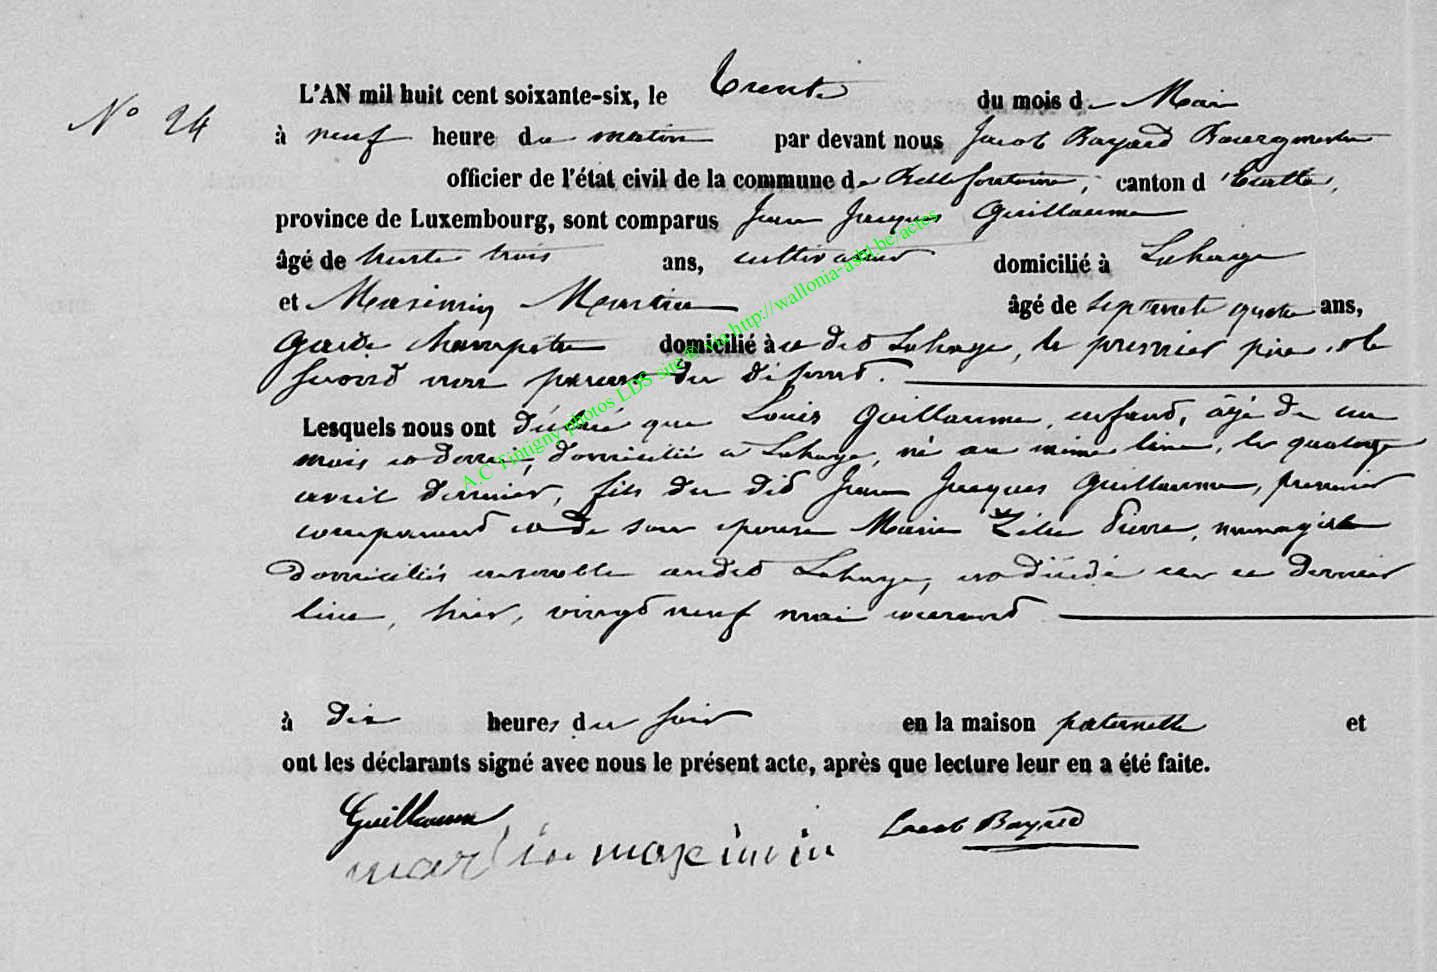 L'AN mil huit cent soixante-six, le trente du mois de Mai
N° 24
à neuf heure du matin par devant nous Jacob Bayard Bourgmestre
officier de l'état civil de la commune de Bellefontaine, canton d'Etalle,
province de Luxembourg, sont comparus Jean Jacques Guillaume
âgé de trente trois ans, cultivateur domicilié à Lahage
et Maximin Martin âgé de septante quatre ans,
Garde champêtre domicilié à au dit Lahage, le premier père et le
second non parent du défunt.
Lesquels nous ont déclaré que Louis Guillaume, enfant, âgé de un
mois et demi, domicilié à Lahage, né au même lieu, le quatorze
avril dernier, fils du dit Jean Jacques Guillaume, premier
comparant et de son épouse Marie Pierre, ménagère
domiciliés ensemble au dit Lahage, est décédé en ce dernier
lieu, hier, vingt neuf mai courant
à dix heures du soir en la maison paternelle et
ont les déclarants signé avec nous le présent acte, après que lecture leur en a été faite.
Guillaume
martin maximin
Jacob Bayard
A.C Tintigny photos LDS site © via http://wallonia-asbl.be/actes